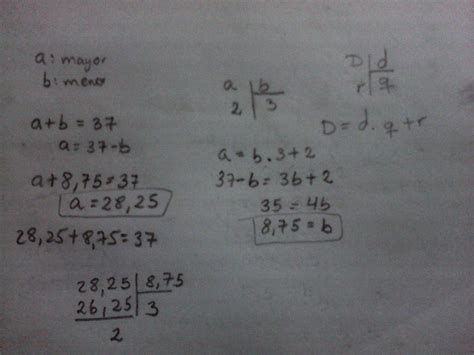 a: mayor
b: menor
a+b = 37
a = 37-b
a+8,75 = 37
a = 28,25
28,25+8,75 = 37
28,25 | 8,75
26,25 | 3
2
a | b
2 | 3
a = b.3+2
37-b = 3b+2
35 = 4b
8,75 = b
D | d
r | q
D = d.q+r